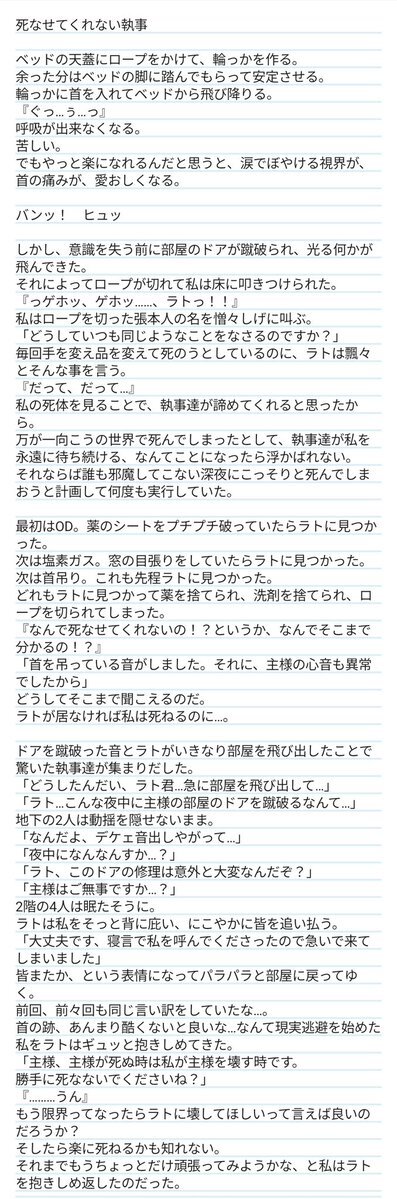 死なせてくれない執事
ベッドの天蓋にロープをかけて、輪っかを作る。
余った分はベッドの脚に踏んでもらって安定させる。
輪っかに首を入れてベッドから飛び降りる。
『ぐっ…ぅ…っ』
呼吸が出来なくなる。
苦しい。
でもやっと楽になれるんだと思うと、涙でぼやける視界が、
首の痛みが、愛おしくなる。
バンッ!　ヒュッ
しかし、意識を失う前に部屋のドアが蹴破られ、光る何かが
飛んできた。
それによってロープが切れて私は床に叩きつけられた。
『っゲホッ、ゲホッ……、ラトっ!!』
私はロープを切った張本人の名を憎々しげに叫ぶ。
「どうしていつも同じようなことをなさるのですか?」
毎回手を変え品を変えて死のうとしているのに、ラトは飄々
とそんな事を言う。
『だって、だって…』
私の死体を見ることで、執事達が諦めてくれると思ったか
ら。
万が一向こうの世界で死んでしまったとして、執事達が私を
永遠に待ち続ける、なんてことになったら浮かばれない。
それならば誰も邪魔してこない深夜にこっそりと死んでしま
おうと計画して何度も実行していた。
最初はOD。薬のシートをプチプチ破っていたらラトに見つか
った。
次は塩素ガス。窓の目張りをしていたらラトに見つかった。
次は首吊り。これも先程ラトに見つかった。
どれもラトに見つかって薬を捨てられ、洗剤を捨てられ、ロ
ープを切られてしまった。
『なんで死なせてくれないの!?というか、なんでそこまで
分かるの!?』
「首を吊っている音がしました。それに、主様の心音も異常
でしたから」
どうしてそこまで聞こえるのだ。
ラトが居なければ私は死ねるのに…。
ドアを蹴破った音とラトがいきなり部屋を飛び出したことで
驚いた執事達が集まりだした。
「どうしたんだい、ラト君…急に部屋を飛び出して…」
「ラト…こんな夜中に主様の部屋のドアを蹴破るなんて…」
地下の2人は動揺を隠せないまま。
「なんだよ、デケェ音出しやがって…」
「夜中になんなんすか…?」
「ラト、このドアの修理は意外と大変なんだぞ?」
「主様はご無事ですか…?」
2階の4人は眠たそうに。
ラトは私をそっと背に庇い、にこやかに皆を追い払う。
「大丈夫です、寝言で私を呼んでくださったので急いで来て
しまいました」
皆またか、という表情になってパラパラと部屋に戻ってゆ
く。
前回、前々回も同じ言い訳をしていたな…。
首の跡、あんまり酷くないと良いな…なんて現実逃避を始めた
私をラトはギュッと抱きしめてきた。
「主様、主様が死ぬ時は私が主様を壊す時です。
勝手に死なないでくださいね?」
『………うん』
もう限界ってなったらラトに壊してほしいって言えば良いの
だろうか?
そしたら楽に死ねるかも知れない。
それまでもうちょっとだけ頑張ってみようかな、と私はラト
を抱きしめ返したのだった。